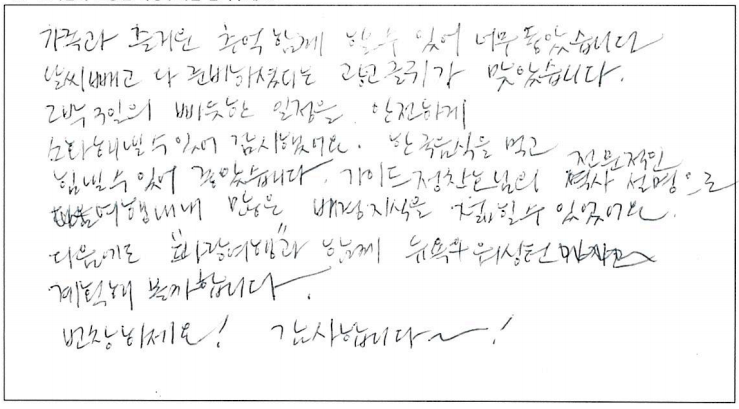 가족과 즐거운 추억 함께 할 수 있어 너무 좋았습니다
날씨 빼고 다 준비하셨다는 광고 글귀가 맞았습니다.
2박 3일의 빠듯한 일정을 안전하게
소화해낼 수 있어 감사했어요. 한국음식을 먹고
힘낼 수 있어 좋았습니다. 가이드 님의 전문적인
역사 설명으로
여행내내 많은 배경지식을 할 수 있었어요.
다음에도 "관광여행"과 함께 뉴욕과 워싱턴
계획해 볼까합니다.
번창하세요! 감사합니다~!